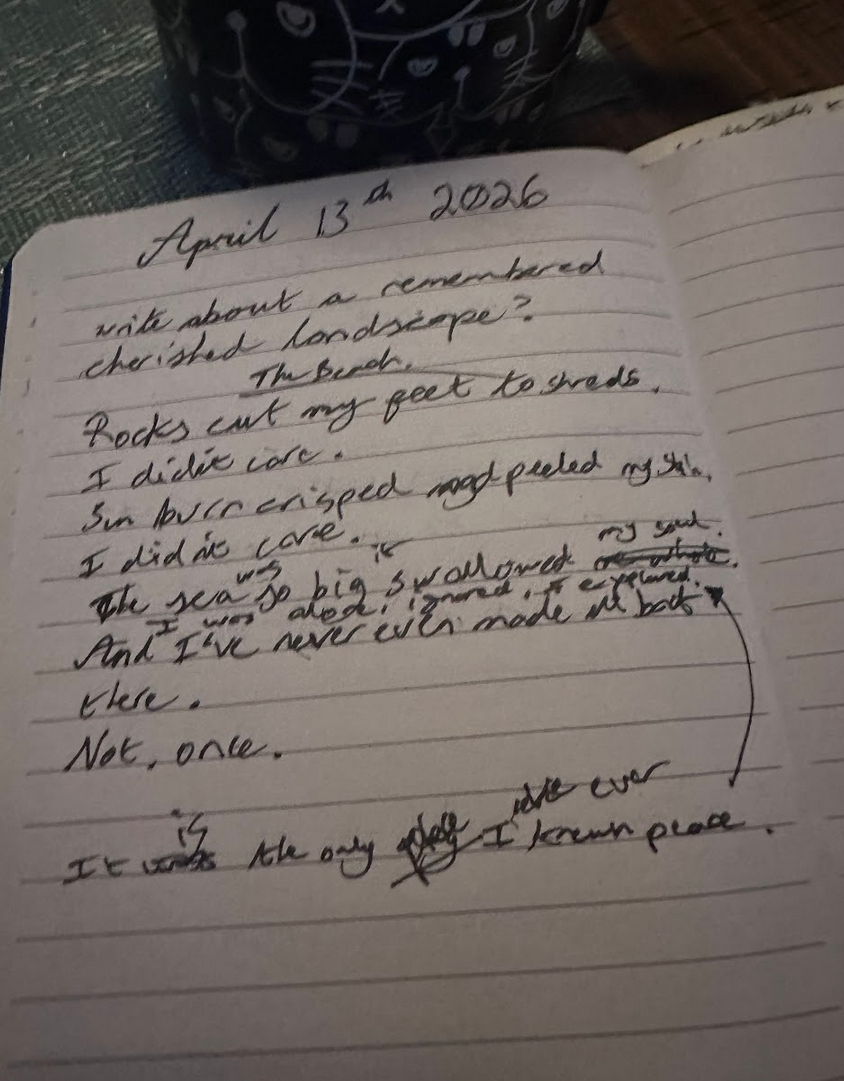 April 13th 2026
write about a remembered
cherished landscape?
The Beach.
Rocks cut my feet to shreds.
I didn't care.
Sun burn crisped and peeled my skin.
I didn't care.
my soul.
was it
The sea so big swallowed me whole.
I was alone, ignored, I explored.
And I've never even made it back
there.
Not, once.
is I've ever
It was the only place I known peace.